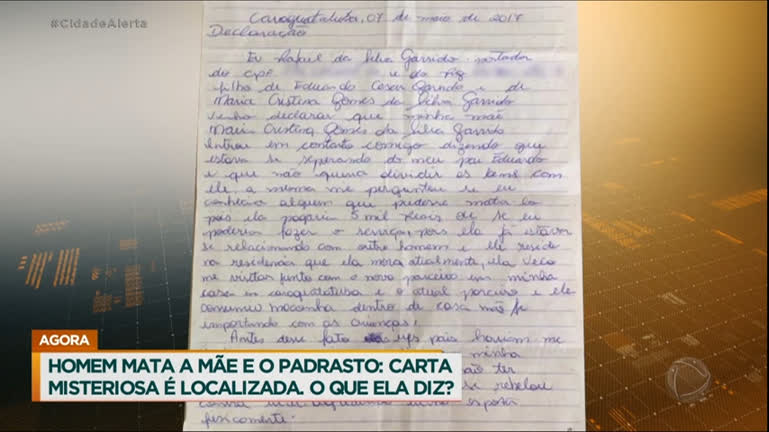 #CidadeAlerta
Caraguatatuba, 07 de maio de 2017
Declaração
Eu Rafael da Silva Garrido portador
do CPF e do Rg
filho de Eduardo Cesar Garrido e de
Maria Cristina Gomes da Silva Garrido
venho declarar que minha mãe
Maria Cristina Gomes da Silva Garrido
entrou em contato comigo dizendo que
estava se separando do meu pai Eduardo
e que não queria dividir os bens com
ele, a mesma me perguntou se eu
conhecia alguem que pudesse matar lo
pois ela pagaria 5 mil Reais ou se eu
poderia fazer o serviço, pois ela já estava
se relacionando com outro homem e ele reside
na residência que ela mora atualmente, ela veio
me visitar junto com o novo parceiro em minha
casa em caraguatatuba e o atual parceiro e ele
consumiu maconha dentro de casa não se
importando com as crianças!
Antes desse fato meus pais houvem me
minha
não ter
se rebelou
contra minha esposa
fisicamente.
AGORA
HOMEM MATA A MÃE E O PADRASTO: CARTA
MISTERIOSA É LOCALIZADA. O QUE ELA DIZ?